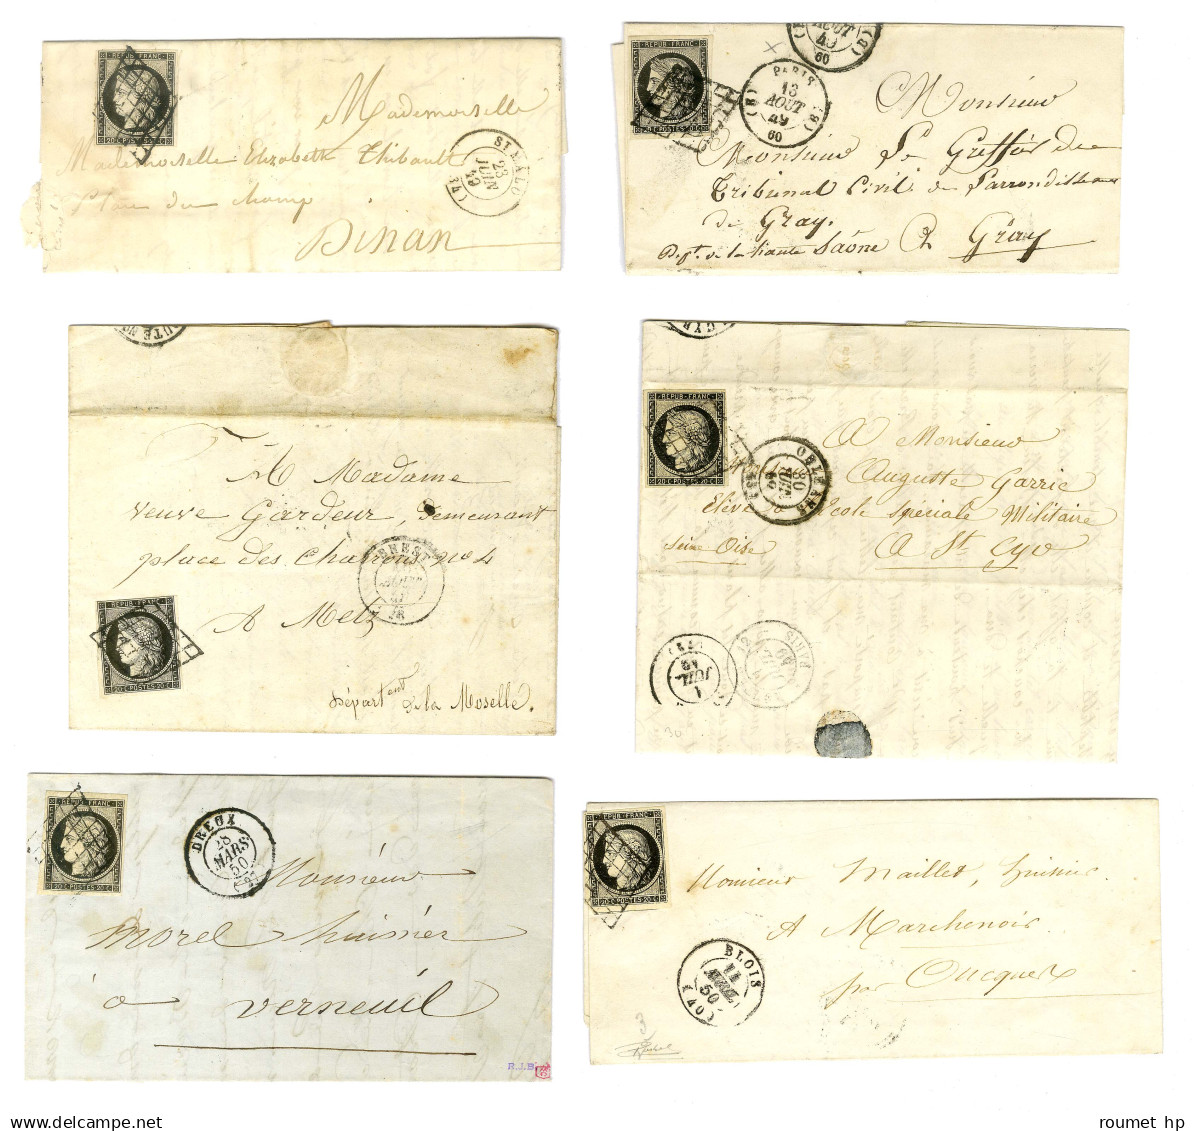 REPUB FRANC
20 C POSTES 20 C
Mademoiselle
Mademoiselle Elizabeth Thibault
Place du champ
Dinan
ST MALO
23
JUIN
49
(34)
REPUB FRANC
20 C POSTES 20 C
AOUT
49
60
PARIS
13
AOUT
49
60
(B) (B)
Monsieur
Monsieur Le Greffier du
Tribunal Civil de l'arrondissement
de Gray.
Dept. de la haute Saône A Gray
REPUB FRANC
20 C POSTES 20 C
A Madame
veuve Gardeur, demeurant
place des Charrons n° 4
A Metz
Départent de la Moselle.
BREST
REPUB FRANC
20 C POSTES 20 C
ORLEANS
30
JUIN
49
A Monsieur
Auguste Garrie
Elève à l'Ecole Spéciale Militaire
Seine Oise A St Cyr
1
JUIL
49
PARIS
30
REPUB FRANC
20 C POSTES 20 C
DREUX
28
MARS
50
(27)
Monsieur
Morel huissier
à Verneuil
R.J.B.
REPUB FRANC
20 C POSTES 20 C
Monsieur Maillet, huissier
A Marchenoir
par Oucques
BLOIS
11
AVRIL
50
(40)
3
roumet hp